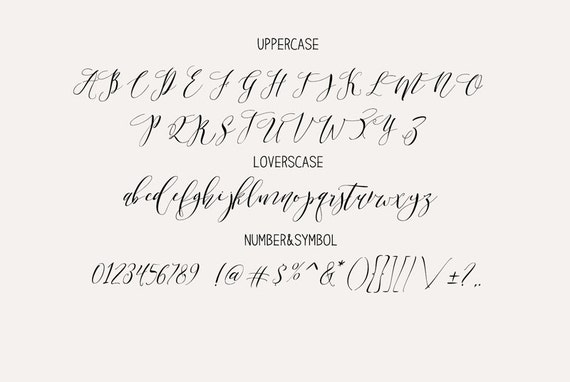 UPPERCASE
A B C D E F G H I J K L M N O
P Q R S T U V W X Y Z
LOVERSCASE
abcdefghijklmnopqrstuvwxyz
NUMBER&SYMBOL
0123456789 !@#$%^&*(){}[]/\/±?,.